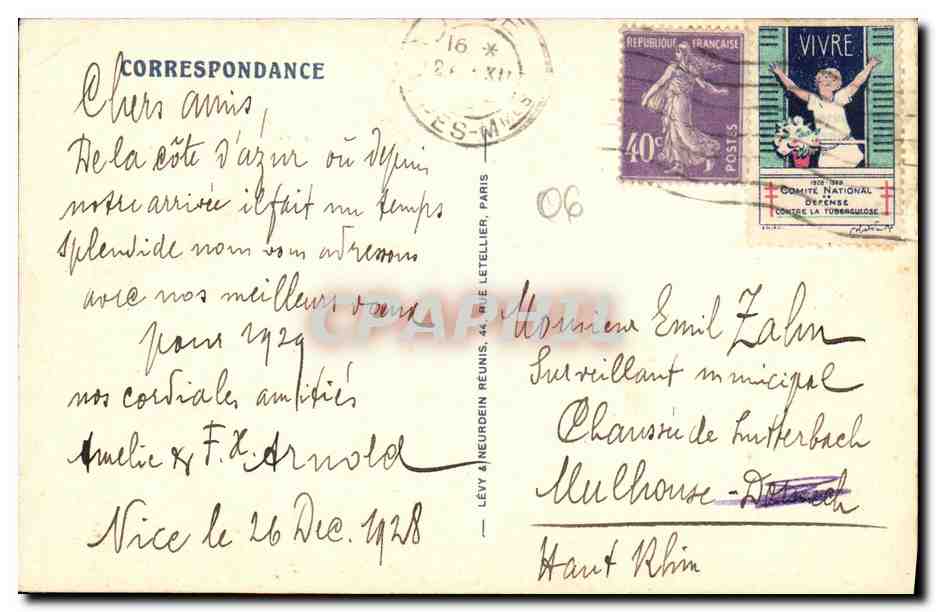 CORRESPONDANCE
Chers amis,
De la côte d'azur où depuis
notre arrivée il fait un temps
splendide nous vous adressons
avec nos meilleurs vœux
pour 1929
nos cordiales amitiés
Amelie & F. X. Arnold
Nice le 26 Dec. 1928
LÉVY & NEURDEIN RÉUNIS, 44, RUE LETELLIER, PARIS
16 *
XII
ES-M
REPUBLIQUE FRANÇAISE
40c
POSTES
VIVRE
1928-1929
COMITÉ NATIONAL
DE
DÉFENSE
CONTRE LA TUBERCULOSE
06
CPAPHIL
Monsieur Emil Zahn
Surveillant municipal
Chaussée de Lutterbach
Mulhouse - Dornach
Haut Rhin